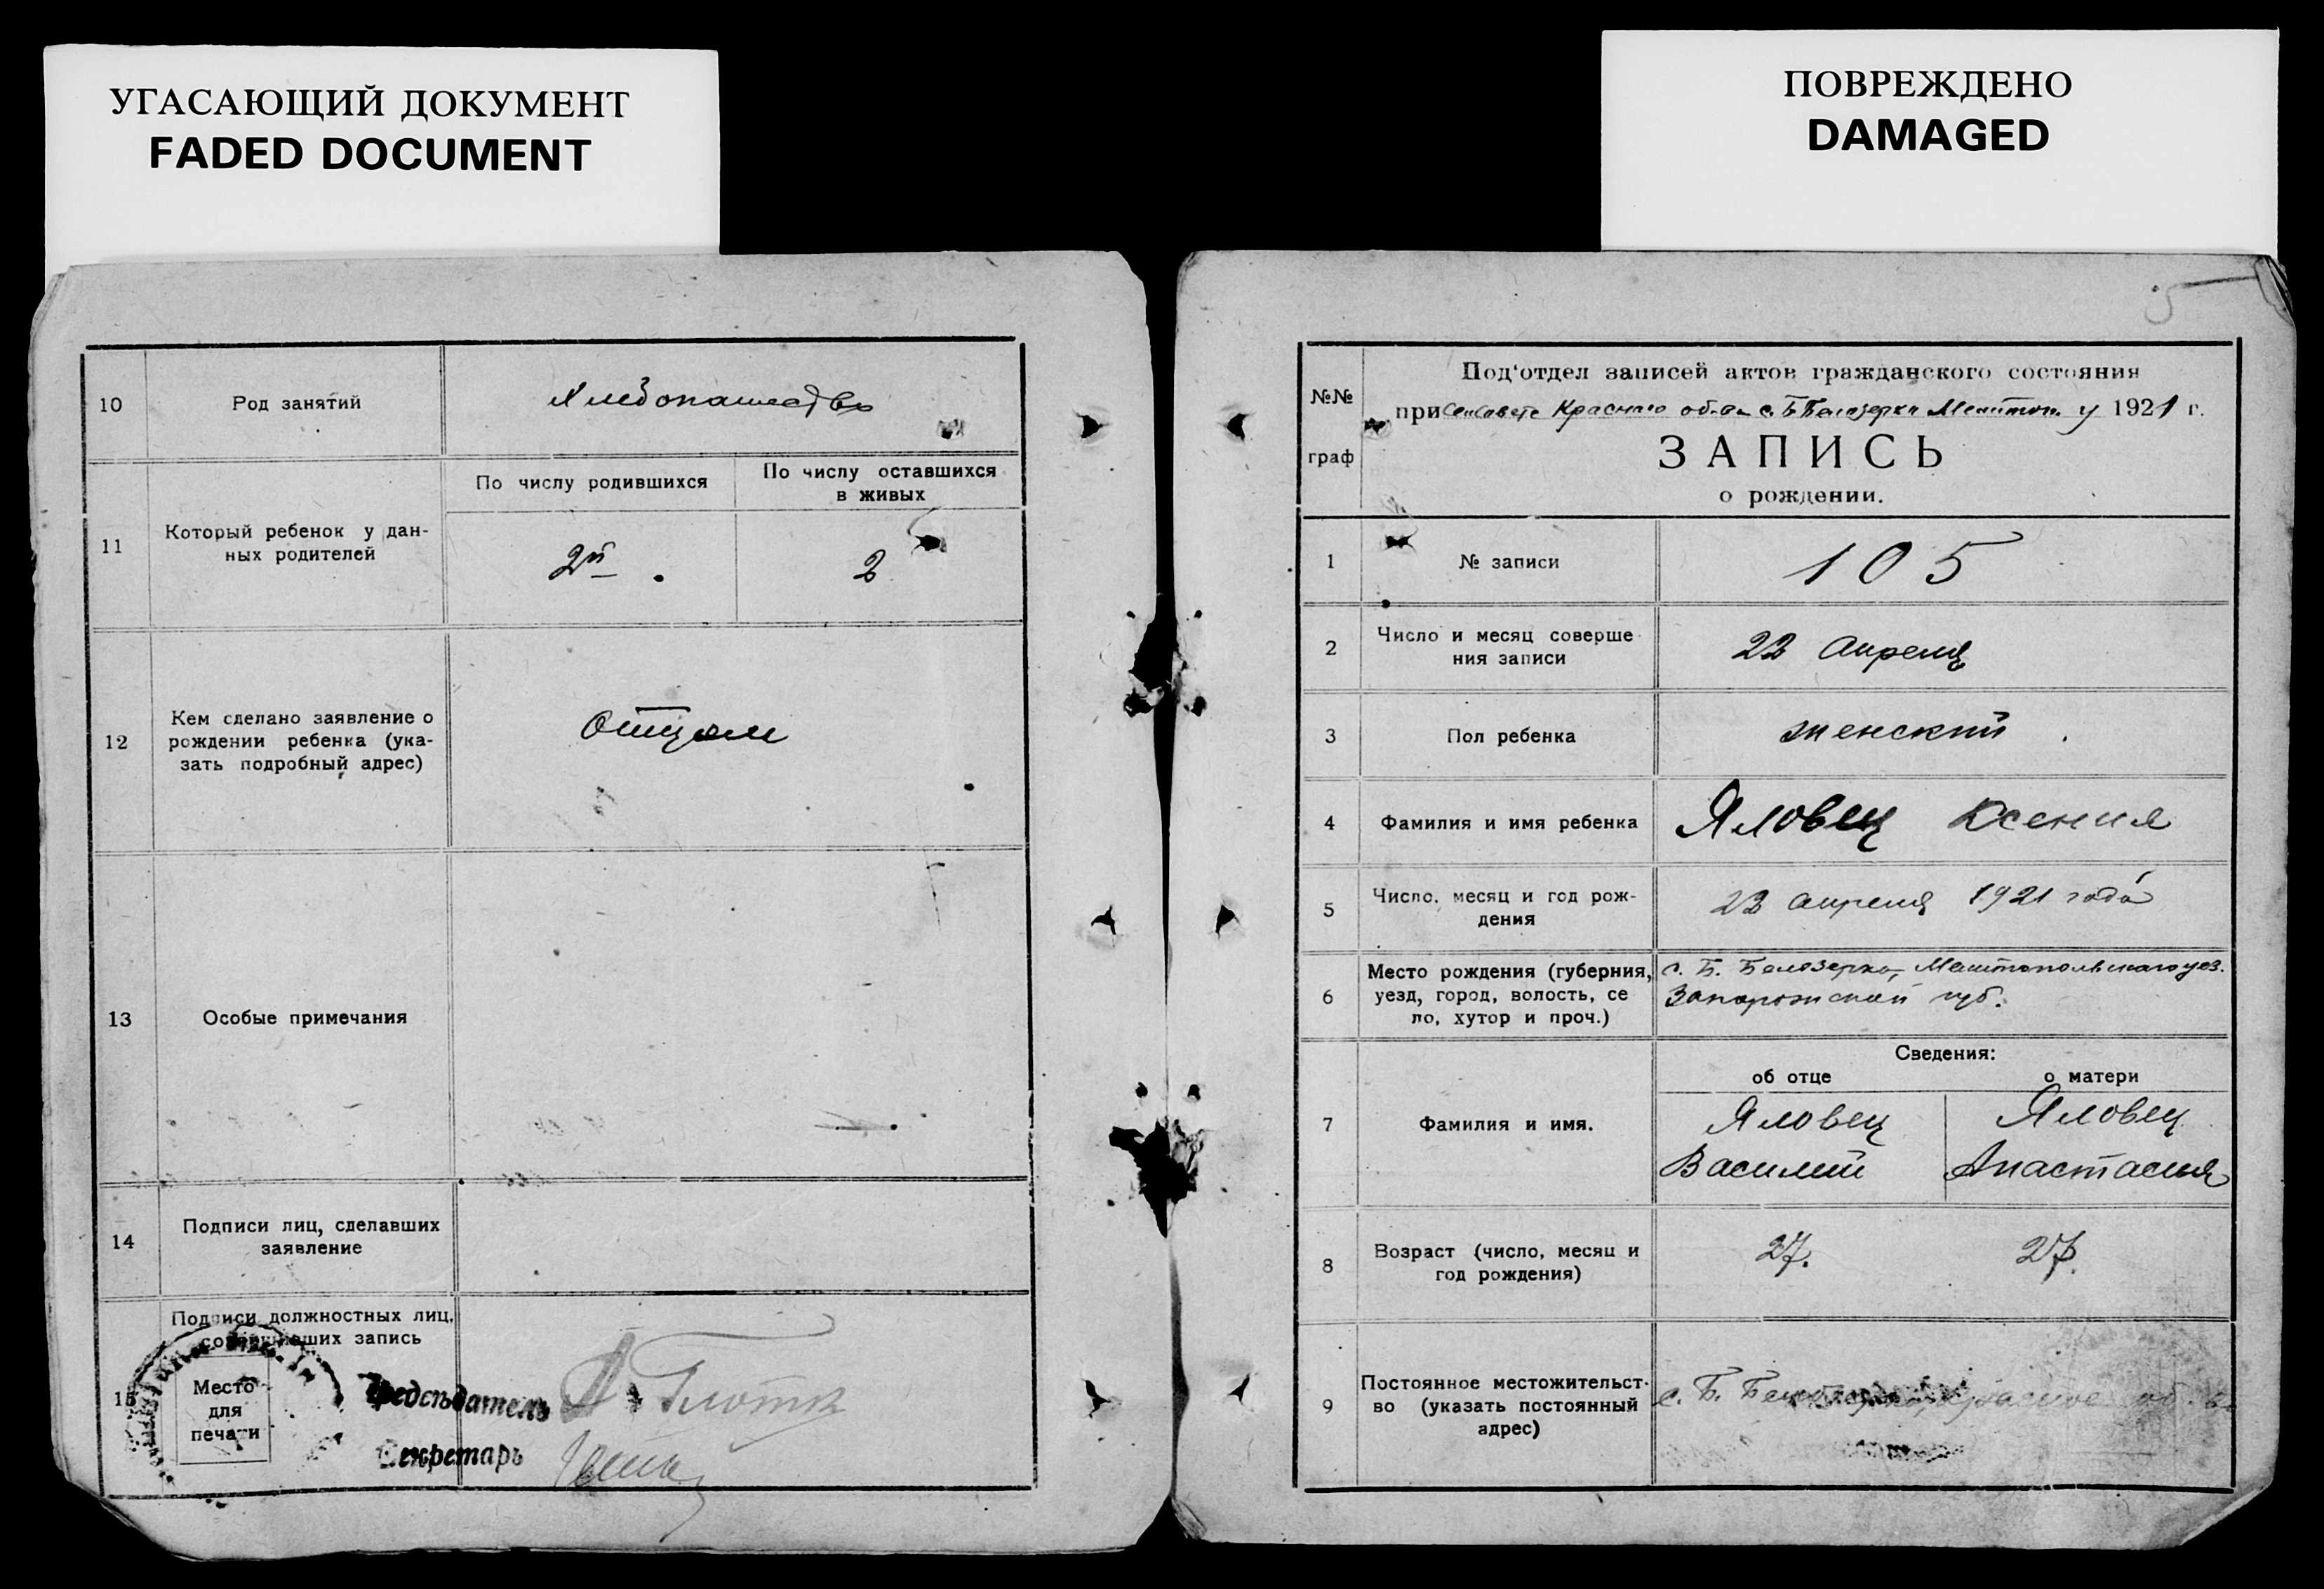 УГАСАЮЩИЙ ДОКУМЕНТ
FADED DOCUMENT
ПОВРЕЖДЕНО
DAMAGED
10
Род занятий
Хлебопашество
11
Который ребенок у дан-
ных родителей
По числу родившихся
2й
По числу оставшихся
в живых
2
12
Кем сделано заявление о
рождении ребенка (ука-
зать подробный адрес)
Отцом
13
Особые примечания
14
Подписи лиц, сделавших
заявление
15
Подписи должностных лиц,
совершивших запись
Место
для
печати
Председатель
Секретарь
5
№№
граф
Под'отдел записей актов гражданского состояния
при Сельсовете Красного об-ва с. Б Белозерки Мелитоп. у 1921 г.
ЗАПИСЬ
о рождении.
1
№ записи
105
2
Число и месяц соверше
ния записи
22 Апреля
3
Пол ребенка
женский
4
Фамилия и имя ребенка
Яловец Ксения
5
Число, месяц и год рож-
дения
22 апреля 1921 года
6
Место рождения (губерния,
уезд, город, волость, се
ло, хутор и проч.)
с. Б. Белозерка, Мелитопольского уез.
Запорожской губ.
Сведения:
об отце
о матери
7
Фамилия и имя.
Яловец
Василий
Яловец
Анастасия
8
Возраст (число, месяц и
год рождения)
27.
27.
9
Постоянное местожительст-
во (указать постоянный
адрес)
с. Б. Белозерка, Красное об-во